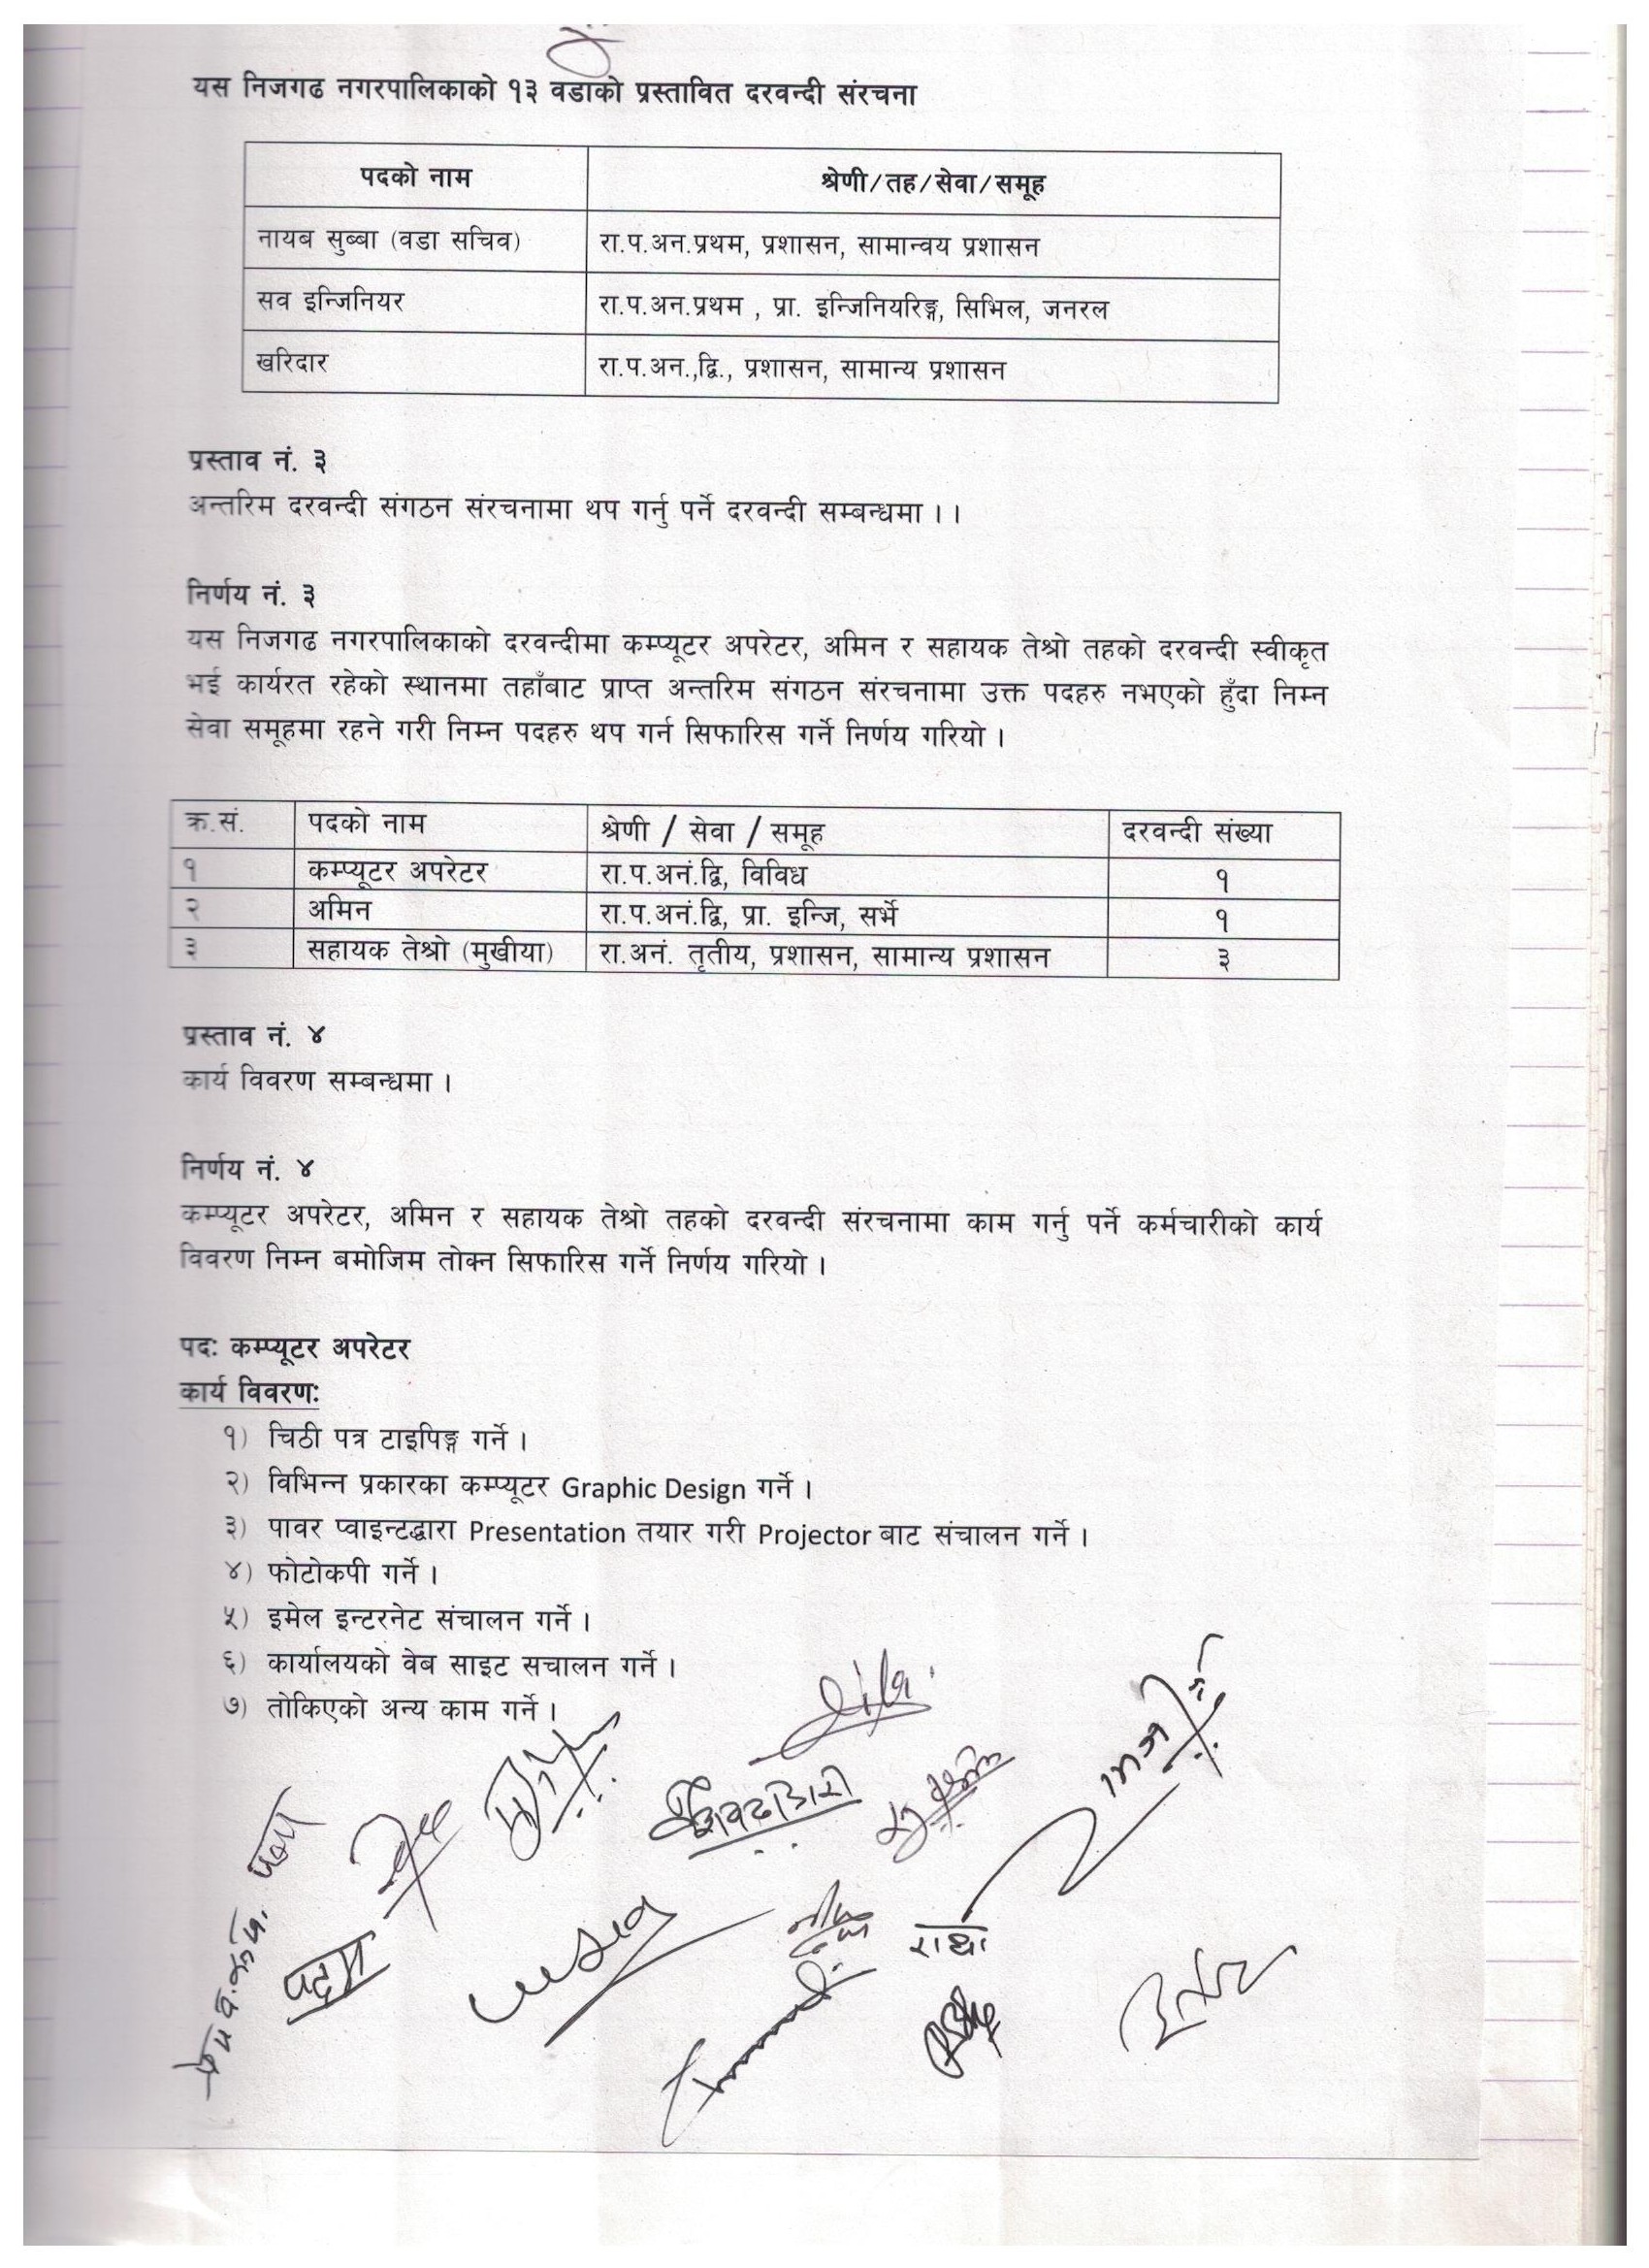 यस निजगढ नगरपालिकाको १३ वडाको प्रस्तावित दरवन्दी संरचना
पदको नाम श्रेणी/तह/सेवा/समूह
नायब सुब्बा (वडा सचिव) रा.प.अन.प्रथम, प्रशासन, सामान्वय प्रशासन
सव इन्जिनियर रा.प.अन.प्रथम , प्रा. इन्जिनियरिङ्ग, सिभिल, जनरल
खरिदार रा.प.अन.,द्वि., प्रशासन, सामान्य प्रशासन
प्रस्ताव नं. ३
अन्तरिम दरवन्दी संगठन संरचनामा थप गर्नु पर्ने दरवन्दी सम्बन्धमा ।।
निर्णय नं. ३
यस निजगढ नगरपालिकाको दरवन्दीमा कम्प्यूटर अपरेटर, अमिन र सहायक तेश्रो तहको दरवन्दी स्वीकृत
भई कार्यरत रहेको स्थानमा तहाँबाट प्राप्त अन्तरिम संगठन संरचनामा उक्त पदहरु नभएको हुँदा निम्न
सेवा समूहमा रहने गरी निम्न पदहरु थप गर्न सिफारिस गर्ने निर्णय गरियो ।
क्र.सं. पदको नाम श्रेणी / सेवा / समूह दरवन्दी संख्या
१ कम्प्यूटर अपरेटर रा.प.अनं.द्वि, विविध १
२ अमिन रा.प.अनं.द्वि, प्रा. इन्जि, सर्भे १
३ सहायक तेश्रो (मुखीया) रा.अनं. तृतीय, प्रशासन, सामान्य प्रशासन ३
प्रस्ताव नं. ४
कार्य विवरण सम्बन्धमा ।
निर्णय नं. ४
कम्प्यूटर अपरेटर, अमिन र सहायक तेश्रो तहको दरवन्दी संरचनामा काम गर्नु पर्ने कर्मचारीको कार्य
विवरण निम्न बमोजिम तोक्न सिफारिस गर्ने निर्णय गरियो ।
पदः कम्प्यूटर अपरेटर
कार्य विवरणः
१) चिठी पत्र टाइपिङ्ग गर्ने ।
२) विभिन्न प्रकारका कम्प्यूटर Graphic Design गर्ने ।
३) पावर प्वाइन्टद्धारा Presentation तयार गरी Projector बाट संचालन गर्ने ।
४) फोटोकपी गर्ने ।
५) इमेल इन्टरनेट संचालन गर्ने ।
६) कार्यालयको वेब साइट सचालन गर्ने ।
७) तोकिएको अन्य काम गर्ने ।
पदम
राधा